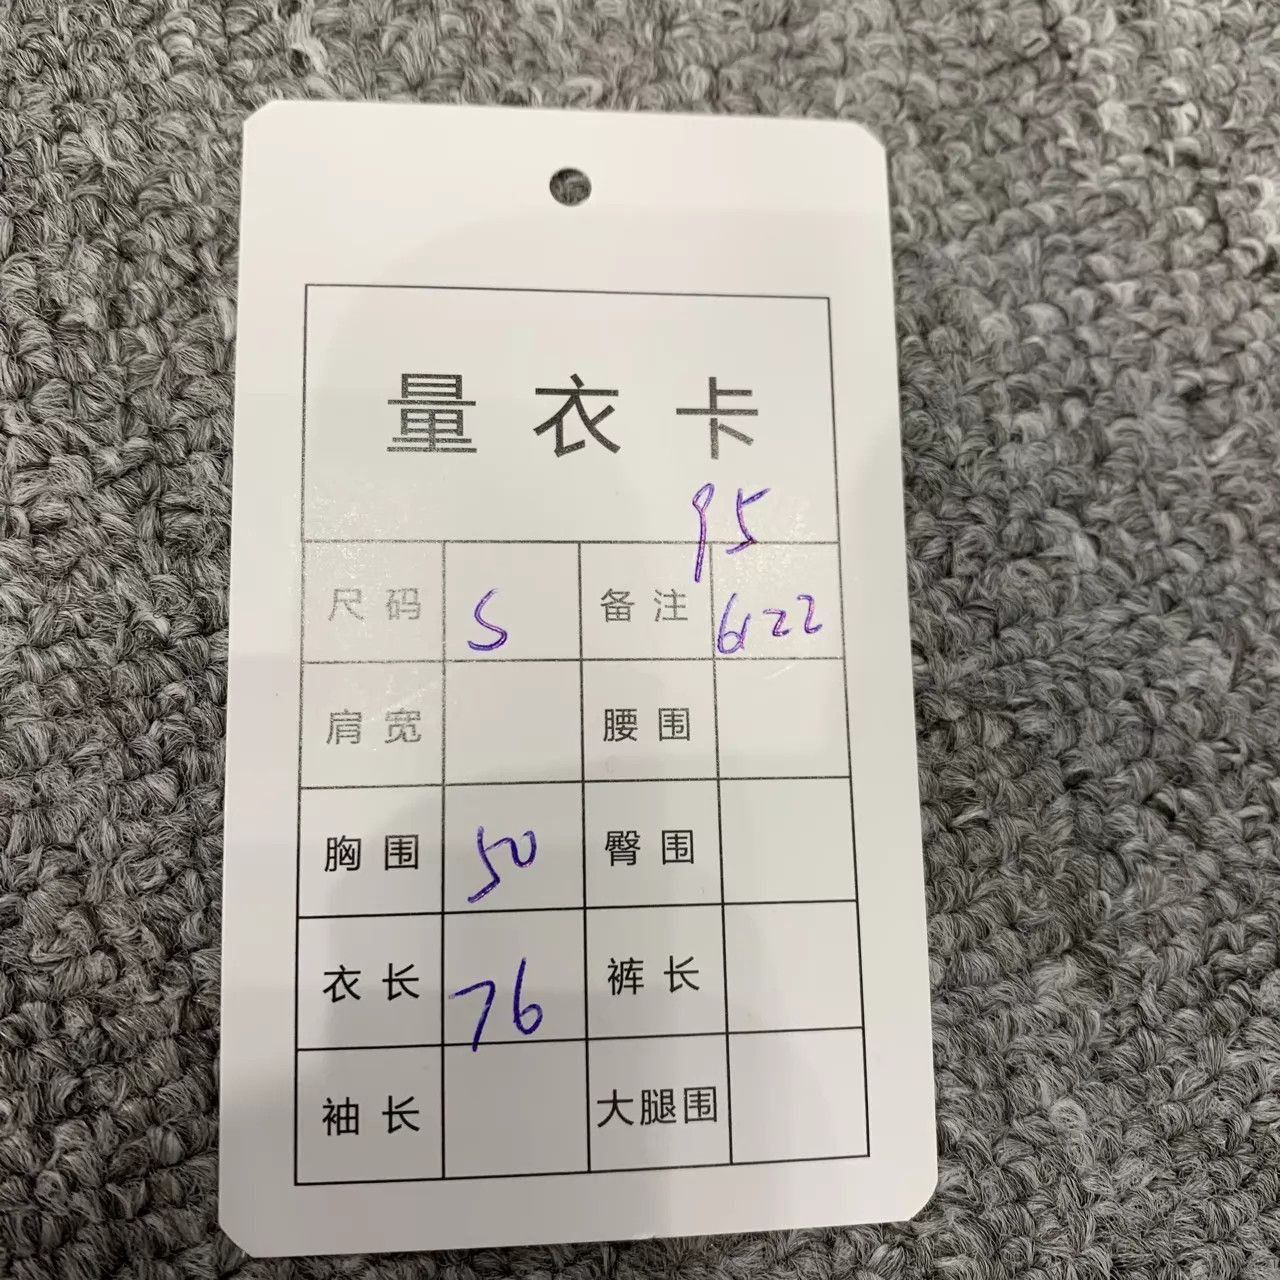 量衣卡
95
尺码 S 备注 6122
肩宽 腰围
胸围 50 臀围
衣长 76 裤长
袖长 大腿围